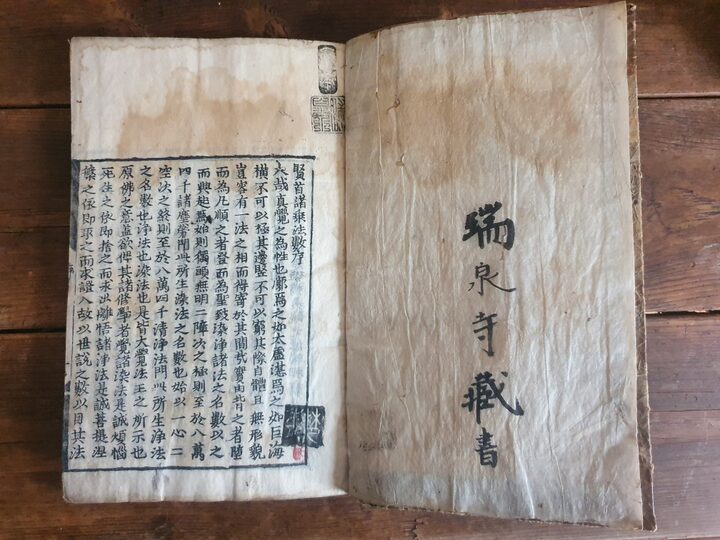 瑞泉寺藏書
賢首諸乗法數序
大哉真覺之為性也廓焉之如太虛湛焉之如巨海
橫不可以極其邊竪不可以窮其際自體且無形貌
豈容有一法之相而得寄於其間哉實由背之者墮
而為凡順之者登而為聖致染淨諸法之名數以之
而興起焉始則獨頭無明二障次之極則至於八萬
四千諸塵勞門此所生染法之名數也始以一心二
空次之終則至於八萬四千清淨法門此所生淨法
之名數也淨法也染法也是皆大覺法王之所示也
原佛之意蓋欲俾其諸修學者覺諸染法是誠煩惱
死生之依即捨之而求出離悟諸淨法是誠菩提涅
槃之依即取之而求證入故以世說之數以目其法